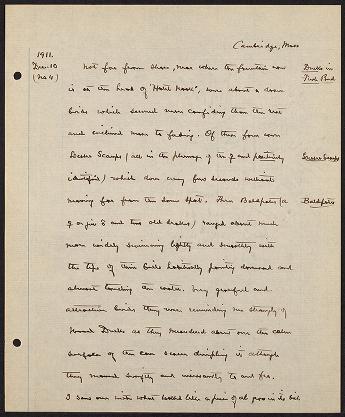 Cambridge, Mass
1911.
Dec. 10
(No 4)
Not far from shore, near where the fountain now
Ducks in
Fresh Pond
is at the head of "Hotel Nook", were about a dozen
birds which seemed more confiding than the rest
and inclined more to feeding. Of these four were
Lesser Scaups (all in the plumage of the ♀ and positively
Lesser Scaups
identified) which dove every few seconds without
moving far from the same spot. Three Baldpates (a
Baldpates
♀ or juv ♂ and two old drakes) ranged about much
more widely swimming lightly and smoothly with
the tips of their bills habitually pointing downward and
almost touching the water. Very graceful and
attractive birds they were reminding me strongly of
Wood Ducks as they meandered about over the calm
surface of the cove scarce dimpling it although
they moved swiftly and incessantly to and fro.
I saw one with what looked like a piece of eel grass in its bill